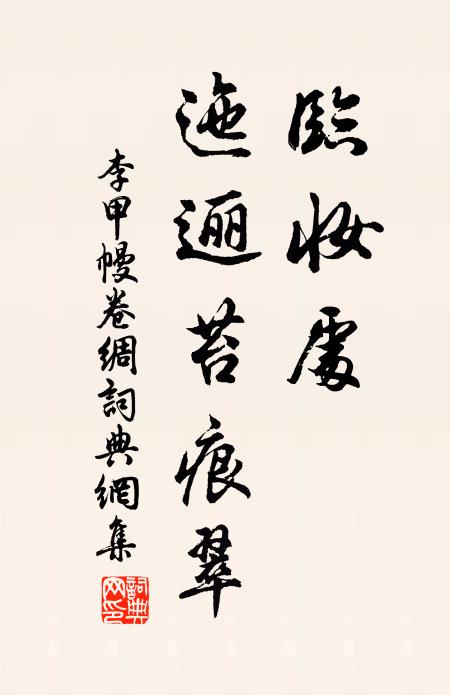 臨妝處
迤逦苔痕翠
李甲幔卷綢詞典網集
詞典网印